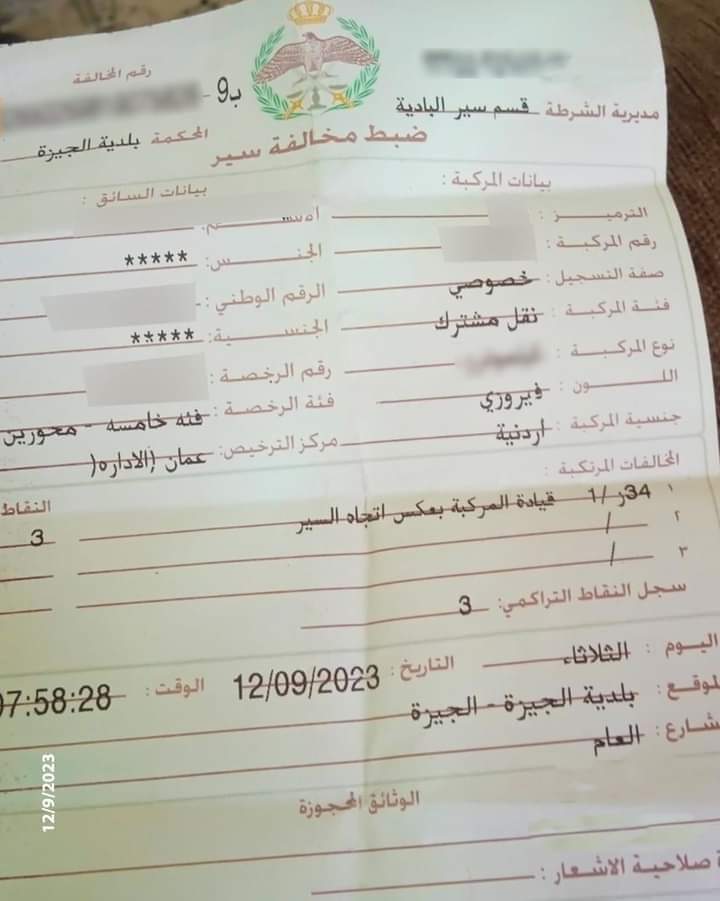 مديرية الشرطة قسم سير البادية
رقم المخالفة
ب9 -
المحكمة بلدية الجيزة
ضبط مخالفة سير
بيانات المركبة :
بيانات السائق :
الترميـــز :
رقم المركبة :
الجنـــس: *****
صفة التسجيل : خصوصي
الرقم الوطني :
فئة المركبة : نقل مشترك
الجنسيـــة: *****
نوع المركبة :
رقم الرخصة :
اللـــــون : فيروزي
فئة الرخصة : فئه خامسه - محورين
جنسية المركبة : اردنية
مركز الترخيص: عمان (الاداره(
المخالفات المرتكبة :
النقاط
١ 34ر /1 قيادة المركبة بعكس اتجاه السير 3
٢ /
٣ /
سجل النقاط التراكمي: 3
اليوم : الثلاثاء التاريخ : 12/09/2023 الوقت : 07:58:28
لموقع : بلدية الجيزة - الجيزة
شارع : العام
الوثائق المحجوزة
ة صلاحية الاشعار :
12/9/2023